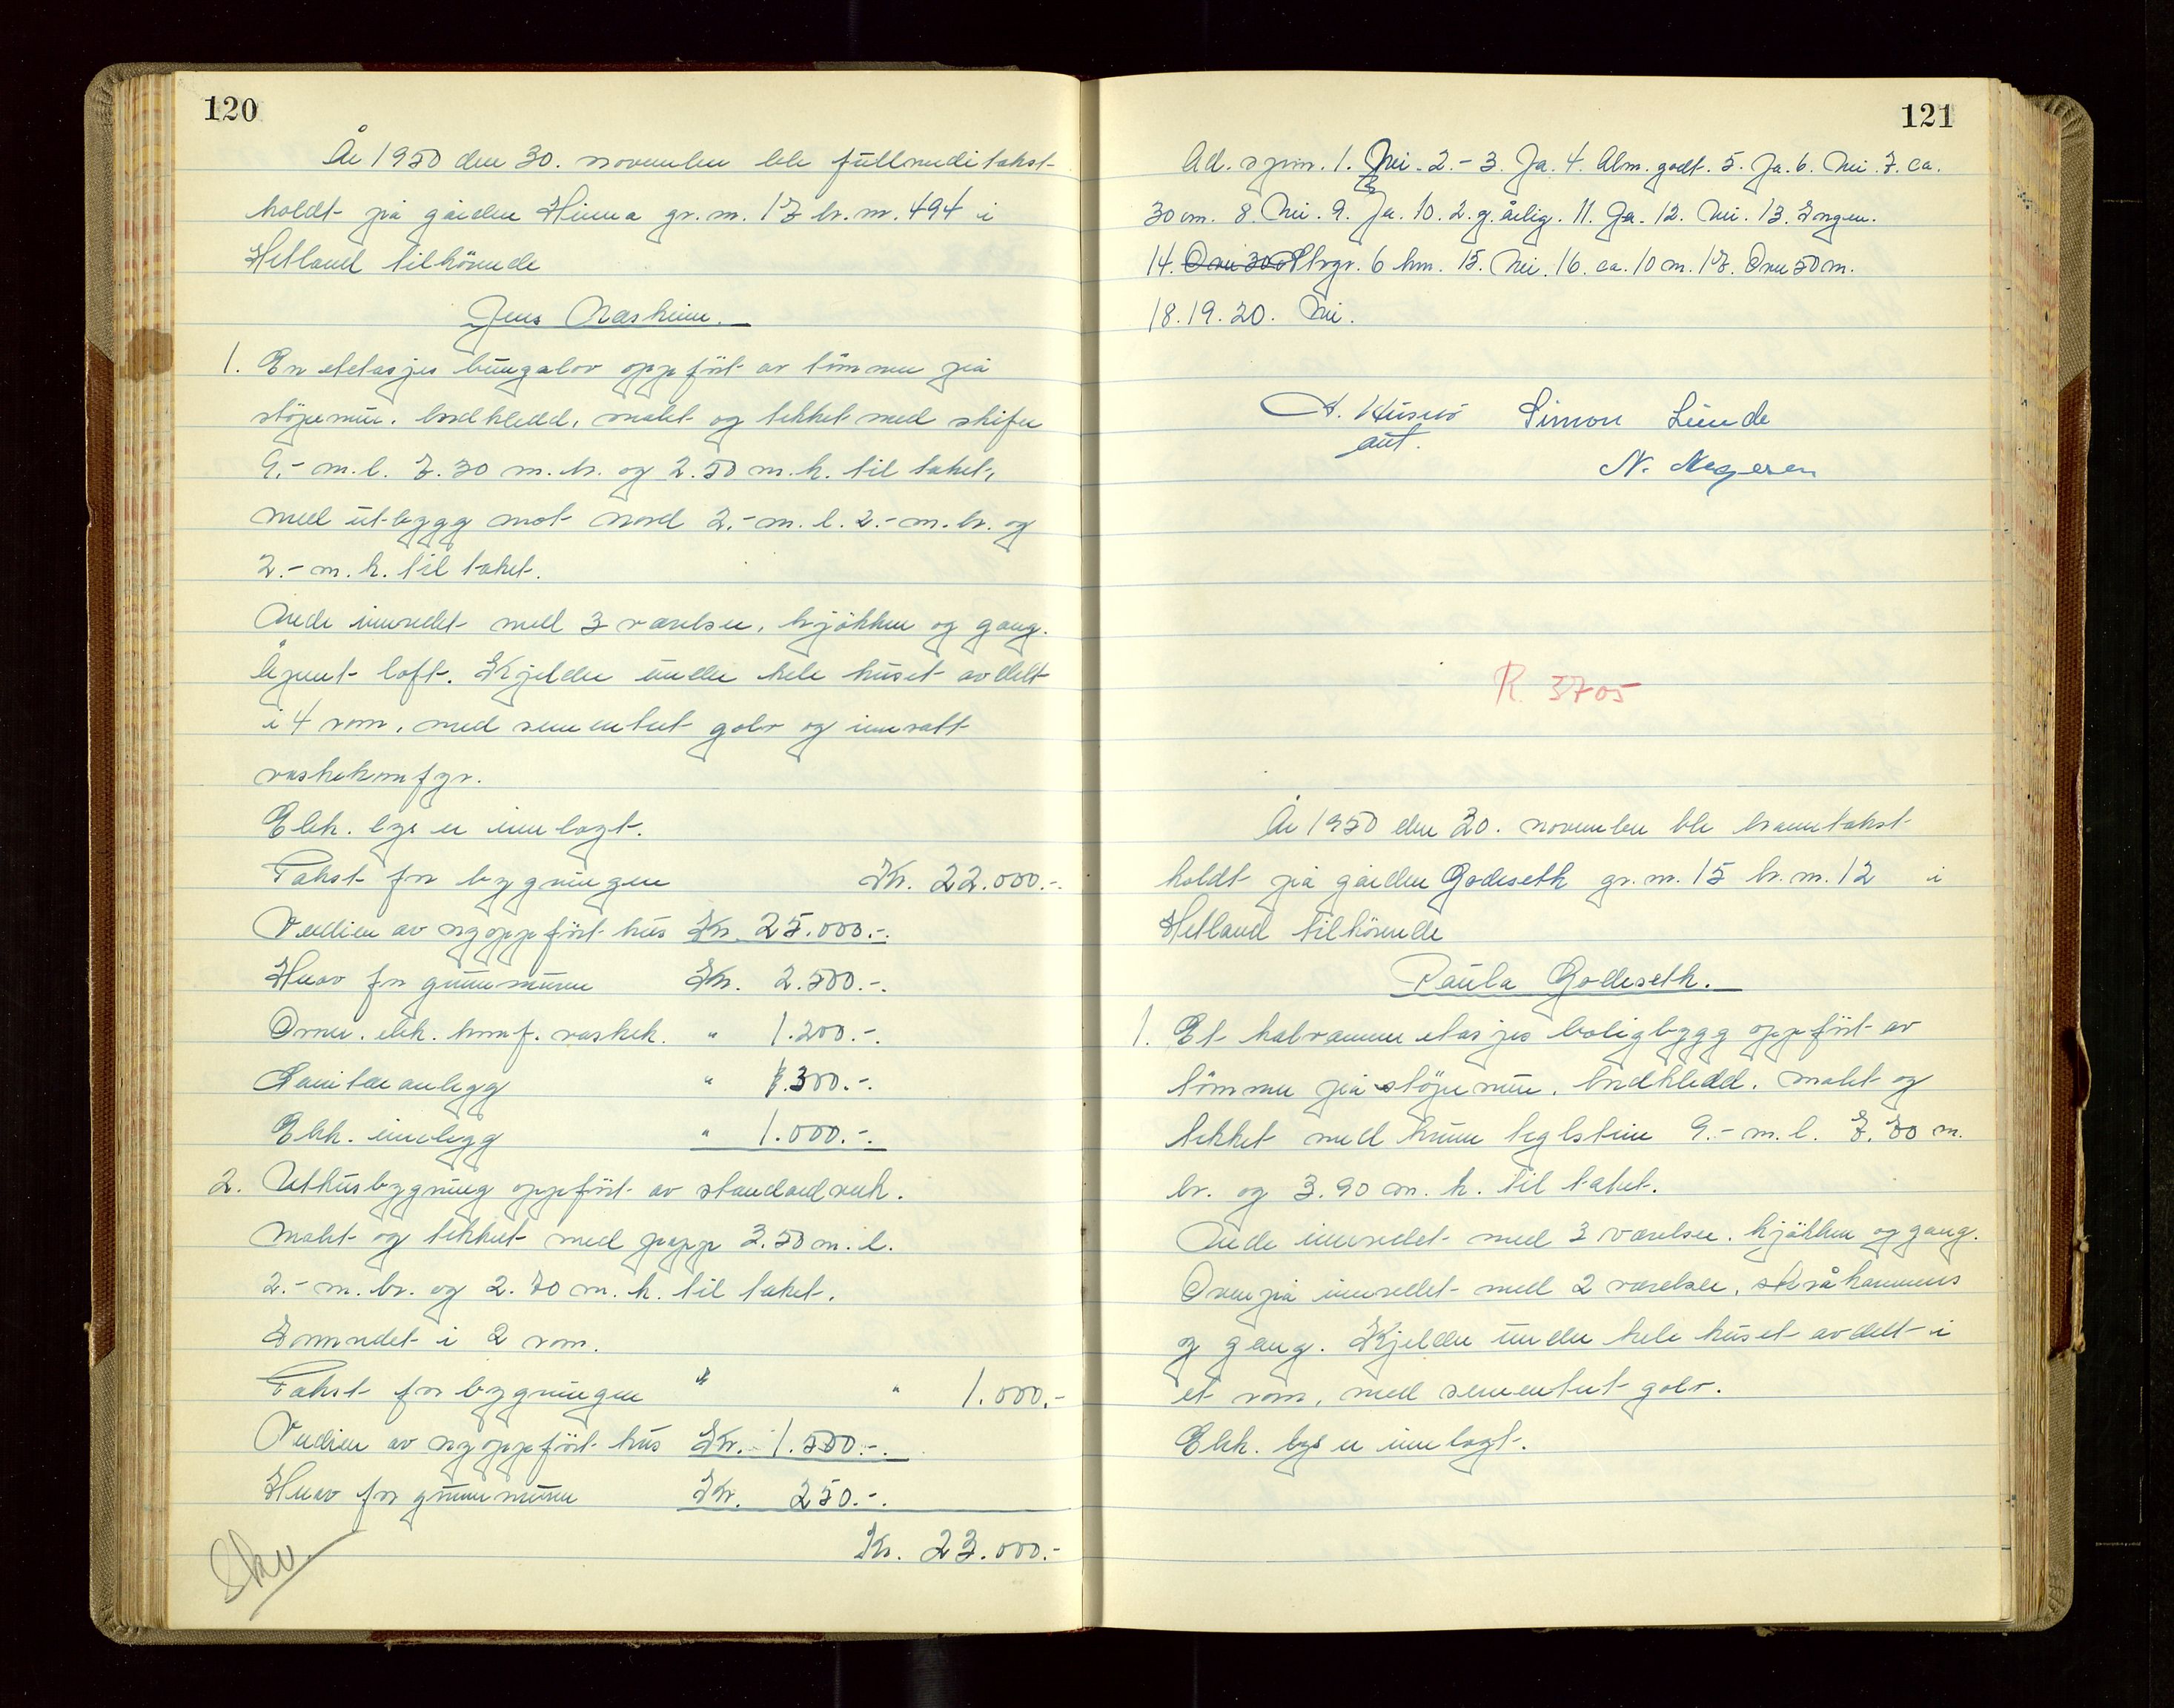 120
År 1950 den 30. november ble fullverditakst
holdt på gården Hinna gr.nr. 17 br.nr. 494 i
Hetland tilhörende
Jens Næsheim.
1. En etetasjes bungalov oppfört av tömmer på
stöpemur, bordkledd, malet og tekket med skifer
9.- m.l. 7.30 m.br. og 2.50 m.h. til taket,
med utbygg mot nord 2.- m.l. 2.- m.br. og
2.- m.h. til taket.
Nede innredet med 3 værelser, kjökken og gang.
Åpent loft. Kjelder under hele huset avdelt
i 4 rom, med sementert golv og innsatt
vaskekomfyr.
Elek. lys er innlagt.
Takst for bygningen Kr. 22.000.-
Verdien av nyoppfört hus Kr. 25.000.-.
Herav for grunnmuren Kr. 2.500.-.
Ovner. elek. komf. vaskek. " 1.200.-.
Sanitæranlegg " 300.-.
Elek. innlegg " 1.000.-.
2. Uthusbygning oppfört av standardverk.
Malet og tekket med papp 3.50 m.l.
2.- m.br. og 2.70 m.h. til taket.
Innredet i 2 rom.
Takst for bygningen " " 1.000.-
Verdien av nyoppfört hus Kr. 1.500.-.
Herav for grunnmuren Kr. 250.-.
Kr. 23.000.-
121
Ad. spm. 1. Nei. 2.- 3. Ja. 4. Alm. godt. 5. Ja. 6. Nei. 7. ca.
30 cm. 8. Nei. 9. Ja. 10. 2.g. årlig. 11. Ja. 12. Nei. 13. Ingen.
14. Over 300 Stvgr. 6 km. 15. Nei. 16. ca. 10 m. 17. Over 50 m.
18. 19. 20. Nei.
A. Husvö Simon Lunde
aut.
R 3705
År 1950 den 30. november ble branntakst
holdt på gården Godeseth gr.nr. 15 br.nr. 12 i
Hetland tilhörende
Paula Godeseth.
1. Et halvannenetasjes boligbygg oppfört av
tömmer på stöpemur, bordkledd, malet og
tekket med krum teglstein 9.- m.l. 7.70 m.
br. og 3.90 m.h. til taket.
Nede innredet med 3 værelser, kjökken og gang.
Ovenpå innredet med 2 værelser, skråkammers
og gang. Kjelder under hele huset avdelt i
et rom, med sementert golv.
Elek. lys er innlagt.